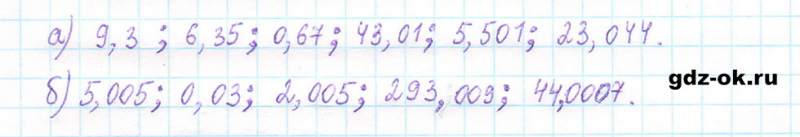 а) 9,3 ; 6,35; 0,67; 43,01; 5,501; 23,044.
gdz-ok.ru
б) 5,005; 0,03; 2,005; 293,009; 44,0007.